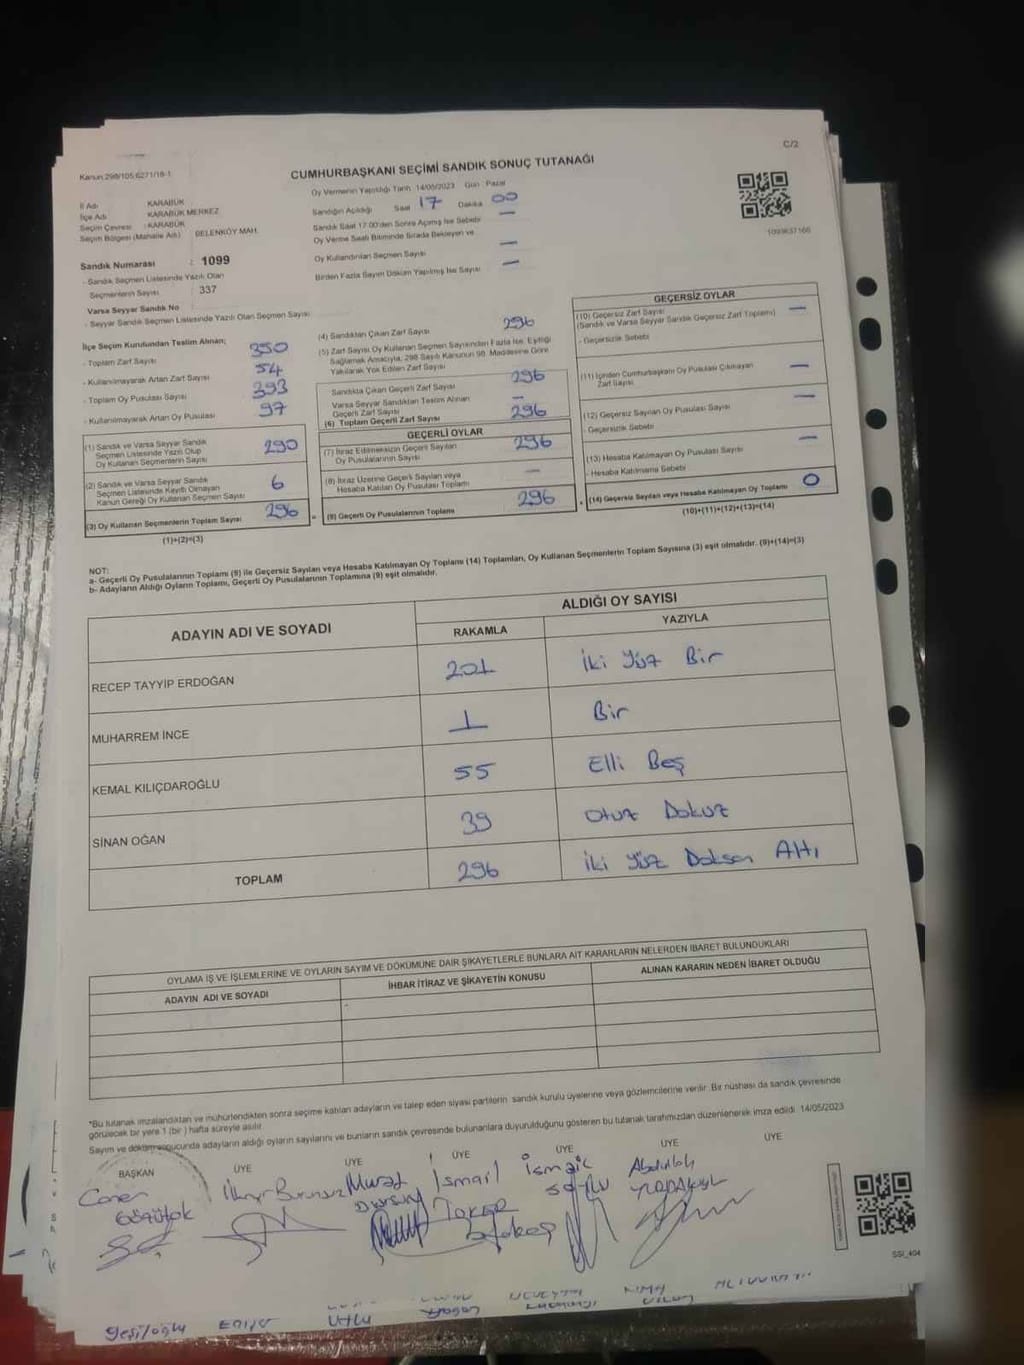 C/2
Kanun:298/105,6271/18-1
CUMHURBAŞKANI SEÇİMİ SANDIK SONUÇ TUTANAĞI
Oy Vermenin Yapıldığı Tarih 14/05/2023 Gün : Pazar
İl Adı KARABÜK
İlçe Adı KARABÜK MERKEZ
Seçim Çevresi : KARABÜK
Seçim Bölgesi (Mahalle Adı) BELENKÖY MAH.
Sandığın Açıldığı Saat 17 Dakika 00
Sandık Saat 17:00'den Sonra Açılmış İse Sebebi —
Oy Verme Saati Bitiminde Sırada Bekleyen ve
Oy Kullandırılan Seçmen Sayısı —
Birden Fazla Sayım Döküm Yapılmış İse Sayısı —
Sandık Numarası : 1099
- Sandık Seçmen Listesinde Yazılı Olan
Seçmenlerin Sayısı : 337
Varsa Seyyar Sandık No
- Seyyar Sandık Seçmen Listesinde Yazılı Olan Seçmen Sayısı
İlçe Seçim Kurulundan Teslim Alınan;
- Toplam Zarf Sayısı 350
- Kullanılmayarak Artan Zarf Sayısı 54
- Toplam Oy Pusulası Sayısı 393
- Kullanılmayarak Artan Oy Pusulası 97
(1) Sandık ve Varsa Seyyar Sandık
Seçmen Listesinde Yazılı Olup
Oy Kullanan Seçmenlerin Sayısı 290
(2) Sandık ve Varsa Seyyar Sandık
Seçmen Listesinde Kayıtlı Olmayan
Kanun Gereği Oy Kullanan Seçmen Sayısı 6
(3) Oy Kullanan Seçmenlerin Toplam Sayısı 296
(1)+(2)=(3)
(4) Sandıktan Çıkan Zarf Sayısı 296
(5) Zarf Sayısı Oy Kullanan Seçmen Sayısından Fazla İse, Eşitliği
Sağlamak Amacıyla, 298 Sayılı Kanunun 98. Maddesine Göre
Yakılarak Yok Edilen Zarf Sayısı
Sandıkta Çıkan Geçerli Zarf Sayısı 296
Varsa Seyyar Sandıktan Teslim Alınan
Geçerli Zarf Sayısı —
(6) Toplam Geçerli Zarf Sayısı 296
GEÇERLİ OYLAR
(7) İtiraz Edilmeksizin Geçerli Sayılan
Oy Pusulalarının Sayısı 296
(8) İtiraz Üzerine Geçerli Sayılan veya
Hesaba Katılan Oy Pusulası Toplamı —
(9) Geçerli Oy Pusulalarının Toplamı 296
GEÇERSİZ OYLAR
(10) Geçersiz Zarf Sayısı —
(Sandık ve Varsa Seyyar Sandık Geçersiz Zarf Toplamı)
- Geçersizlik Sebebi
(11) İçinden Cumhurbaşkanı Oy Pusulası Çıkmayan
Zarf Sayısı —
(12) Geçersiz Sayılan Oy Pusulası Sayısı —
- Geçersizlik Sebebi
(13) Hesaba Katılmayan Oy Pusulası Sayısı —
- Hesaba Katılmama Sebebi
(14) Geçersiz Sayılan veya Hesaba Katılmayan Oy Toplamı 0
(10)+(11)+(12)+(13)=(14)
NOT:
a- Geçerli Oy Pusulalarının Toplamı (9) ile Geçersiz Sayılan veya Hesaba Katılmayan Oy Toplamı (14) Toplamları, Oy Kullanan Seçmenlerin Toplam Sayısına (3) eşit olmalıdır. (9)+(14)=(3)
b- Adayların Aldığı Oyların Toplamı, Geçerli Oy Pusulalarının Toplamına (9) eşit olmalıdır.
ADAYIN ADI VE SOYADI
ALDIĞI OY SAYISI
RAKAMLA YAZIYLA
RECEP TAYYİP ERDOĞAN 201 İki Yüz Bir
MUHARREM İNCE 1 Bir
KEMAL KILIÇDAROĞLU 55 Elli Beş
SİNAN OĞAN 39 Otuz Dokuz
TOPLAM 296 İki Yüz Doksan Altı
OYLAMA İŞ VE İŞLEMLERİNE VE OYLARIN SAYIM VE DÖKÜMÜNE DAİR ŞİKAYETLERLE BUNLARA AİT KARARLARIN NELERDEN İBARET BULUNDUKLARI
ADAYIN ADI VE SOYADI İHBAR İTİRAZ VE ŞİKAYETİN KONUSU ALINAN KARARIN NEDEN İBARET OLDUĞU
*Bu tutanak imzalandıktan ve mühürlendikten sonra seçime katılan adayların ve talep eden siyasi partilerin sandık kurulu üyelerine veya gözlemcilerine verilir. Bir nüshası da sandık çevresinde
görülecek bir yere 1 (bir) hafta süreyle asılır.
Sayım ve döküm sonucunda adayların aldığı oyların sayılarını ve bunların sandık çevresinde bulunanlara duyurulduğunu gösteren bu tutanak tarafımızdan düzenlenerek imza edildi. 14/05/2023
BAŞKAN ÜYE ÜYE ÜYE ÜYE ÜYE ÜYE
Caner Murat İsmail İsmail Abdullah
Dursun Toker
SSI_404
Yeşiloğlu